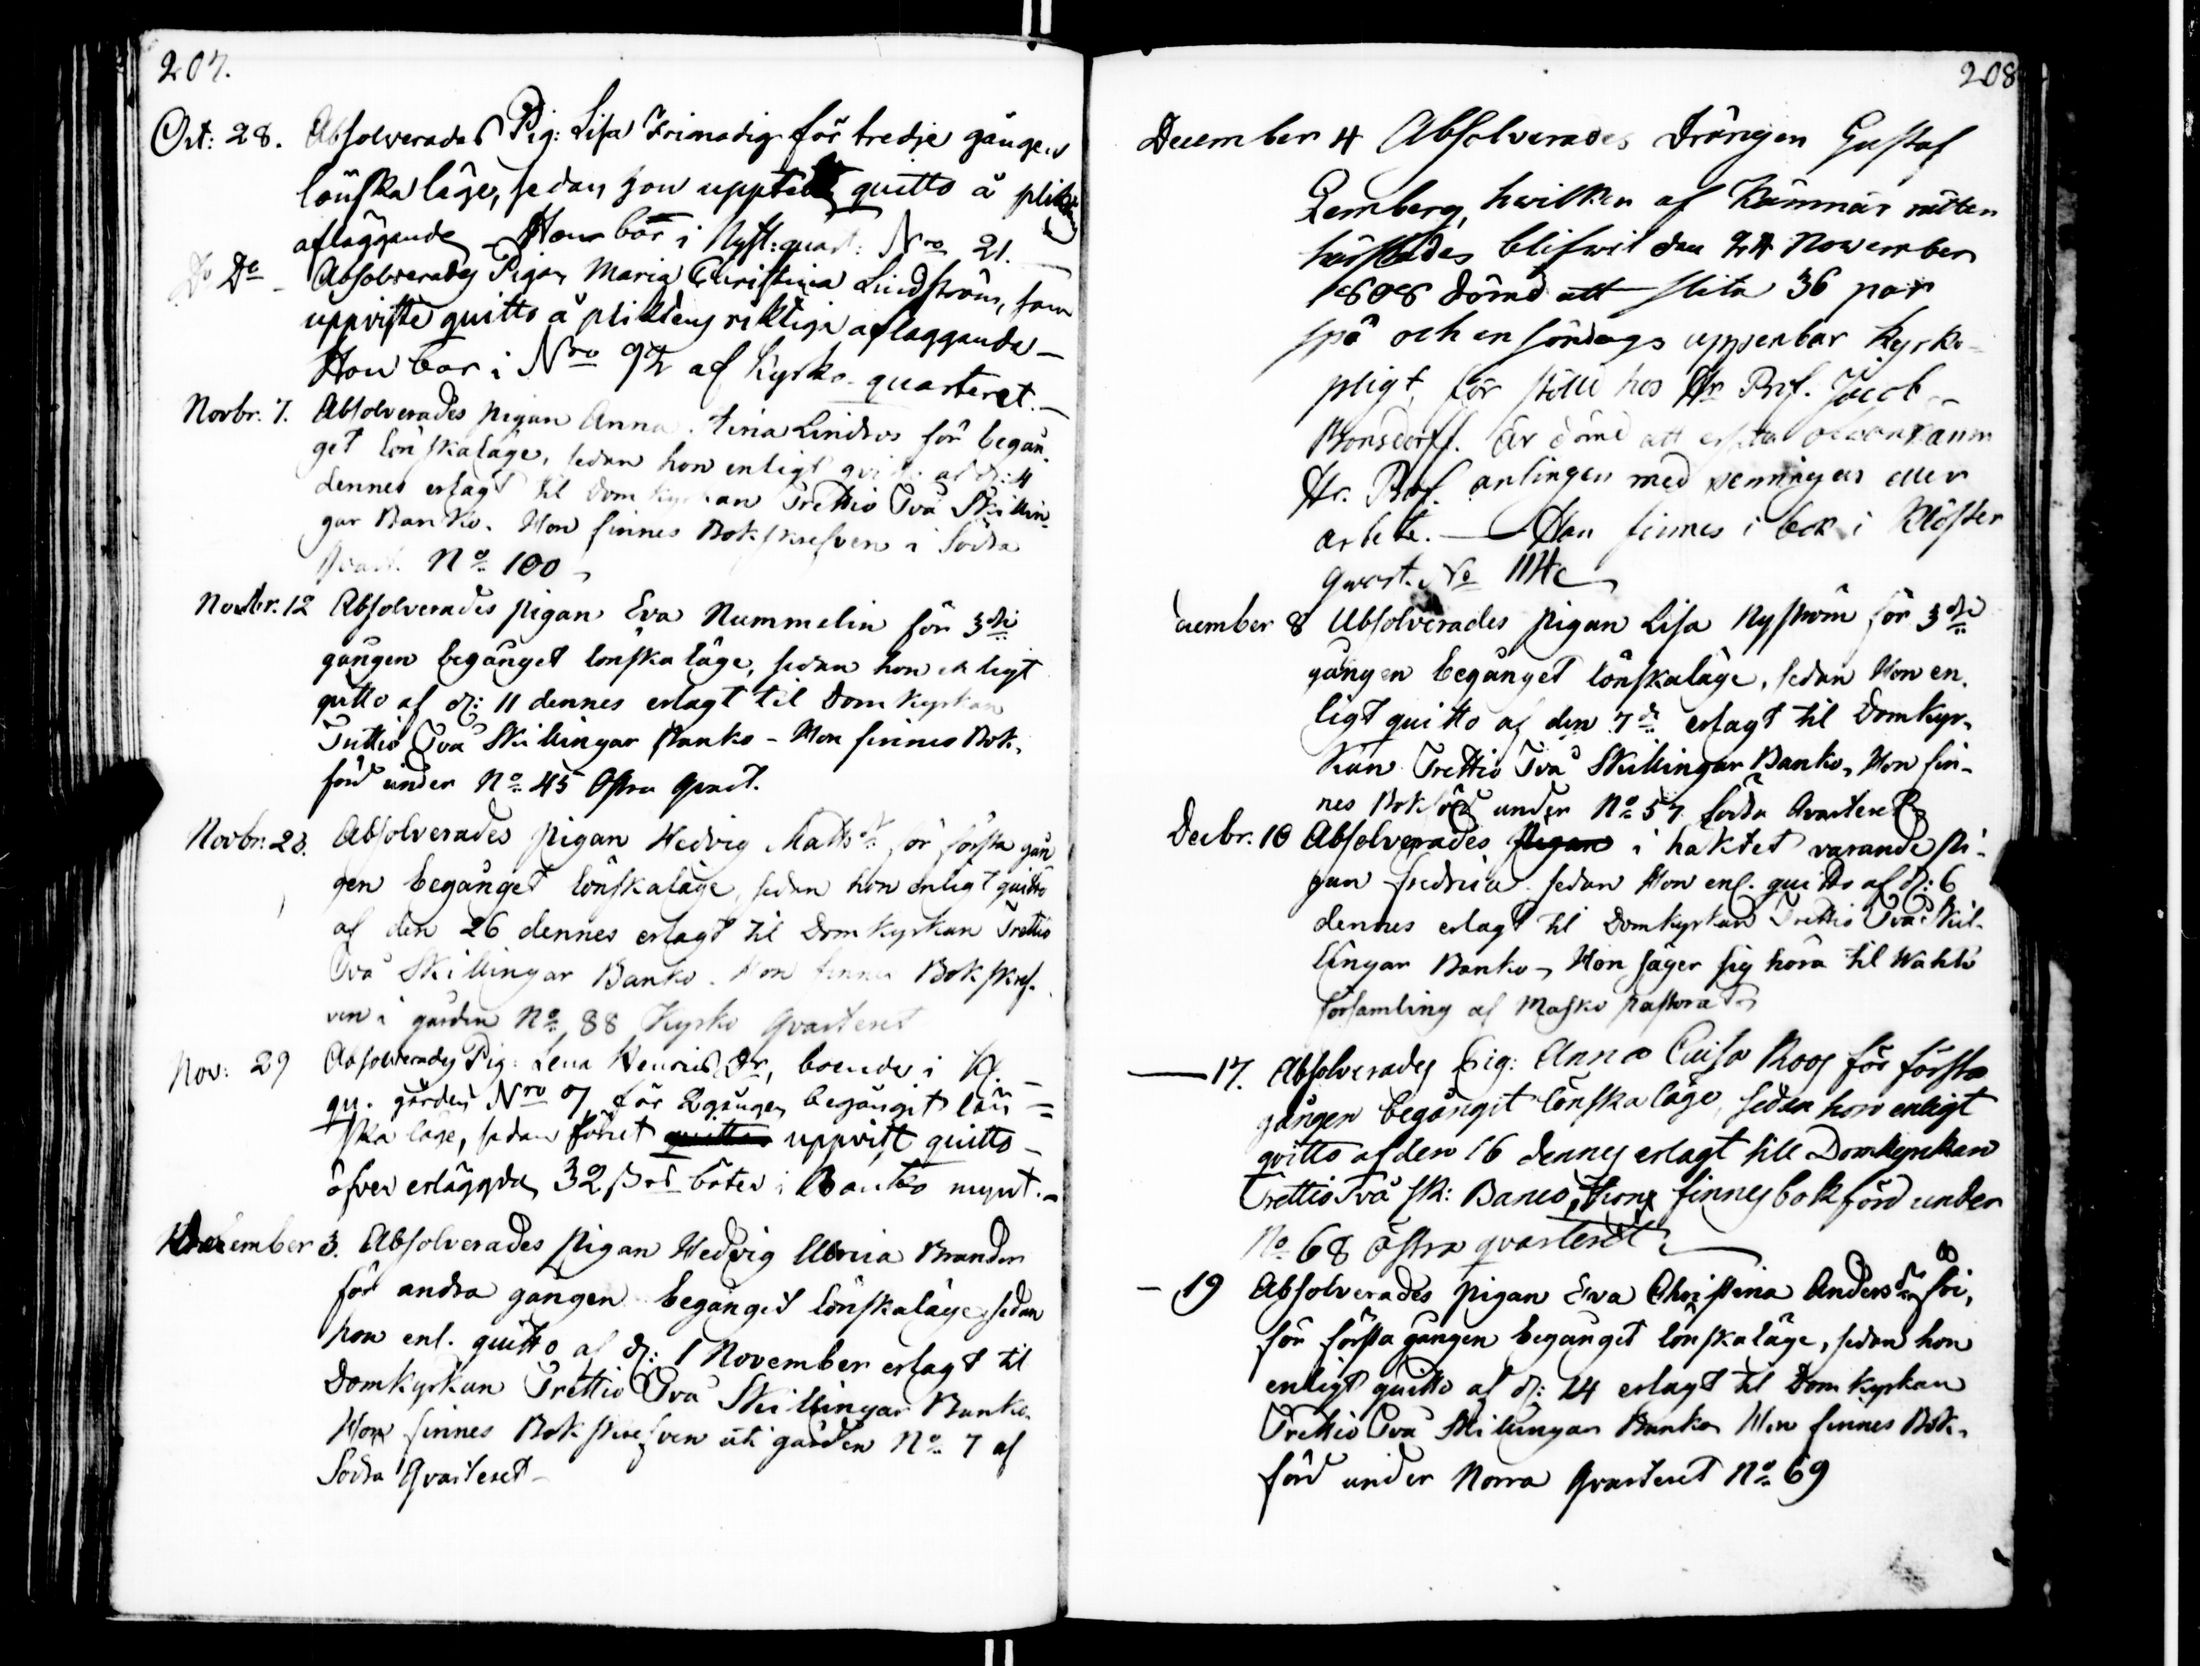 207.
Oct: 28. Absolverades Pig: Lisa Frimodig för tredje gången
lönskaläge, sedan hon quitto å
afläggande Hon bor i Nyst: quart: Nro 21.
Do Do Absolverades Pigan Maria Christina Lindström, som
uppviste quitto å pliktens riktiga afläggande
Hon bor i Nro 92 af Kyrko-quarteret.
Novbr. 7. Absolverades pigan Anna Stina Lindros för begån-
get lönskaläge, sedan hon enligt qvitto af d: 4
dennes erlagt til Domkyrkan Trettio Två Skillin-
gar Banko. Hon finnes Bokskrefven i Södra
Qvart. No 100
Novbr. 12 Absolverades pigan Eva Nummelin för 3dje
gången begånget lönskaläge, sedan hon enligt
qvitto af d: 11 dennes erlagt til Domkyrkan
Trettio Två Skillingar Banko - Hon finnes Bok-
förd under No 45 Östra qvart.
Novbr. 28. Absolverades pigan Hedvig Mattsdr för första gån
gen begånget lönskaläge, sedan hon enligt quitto
af den 26 dennes erlagt til Domkyrkan Trettio
Två Skillingar Banko. Hon finnes Bokskref-
ven i gården No 88 Kyrko Qvarteret
Nov: 29 Absolverades Pig: Lena Henricsdr, boende i
qu. gården Nro 97 för 2 gången begångit lön=
ska läge, sedan uppvist quitto
öfver erlagda 32 böter i Banko mynt.
December 3. Absolverades pigan Hedvig Ulrica Brander
för andra gången begånget lönskaläge, sedan
hon enl. quitto af d: 1 November erlagt til
Domkyrkan Trettio Två Skillingar Banko.
Hon finnes Bokskrefven uti gården No 7 af
Södra Qvarteret
208
December 4 Absolverades Drängen Gustaf
Lemberg, hwilken af Kämnärs rätten
härstädes blifwit den 24 November
1808 dömd att slita 36 par
spö och en söndags uppenbar kyrko-
pligt, för stöld hos Hr Prof. Jacob
Bonsdorff. Är dömd att ersätta
Hr. Prof. antingen med penningar eller
arbete. Han finnes i bok i Kloster
qvart. No 114
December 8 Absolverades pigan Lisa Nyström för 3dje
gången begånget lönskaläge, sedan Hon en-
ligt quitto af den 7de erlagt til Domkyr-
kan Trettio Två Skillingar Banko, Hon fin-
nes Bokförd under No 57 Södra Qvarteret
Decbr. 10 Absolverades pigan i häktet varande pi-
gan Fredrica sedan Hon enl. quitto af d: 6
dennes erlagt til Domkyrkan Trettio Två Skil-
lingar Banko, Hon säger sig höra til Wahto
församling af Masko pastorat
17. Absolverades Pig: Anna Caisa Roos för första
gången begångit lönskaläge, sedan hon enligt
qvitto af den 16 dennes erlagt till Domkyrkan
Trettio Två sk: Banco, Hon finnes bokförd under
No 68 Östra qvarteret
19 Absolverades pigan Eva Christina Andersdr
för första gången begånget lönskaläge, sedan hon
enligt quitto af d: 14 erlagt til Domkyrkan
Trettio Två Skillingar Banko Hon finnes Bok-
förd under Norra Qvarteret No 69